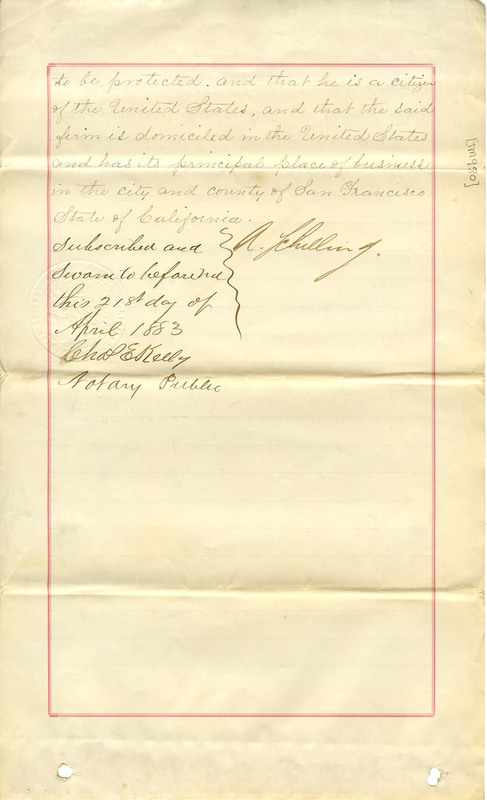 to be protected. and that he is a citizen
of the United States, and that the said
firm is domiciled in the United States
and has its principal place of business
in the city and county of San Francisco
State of California.
Subscribed and
Sworn to before me
this 21st day of
April 1883
Chas E Kelly
Notary Public
A. Schilling.
[TM980]